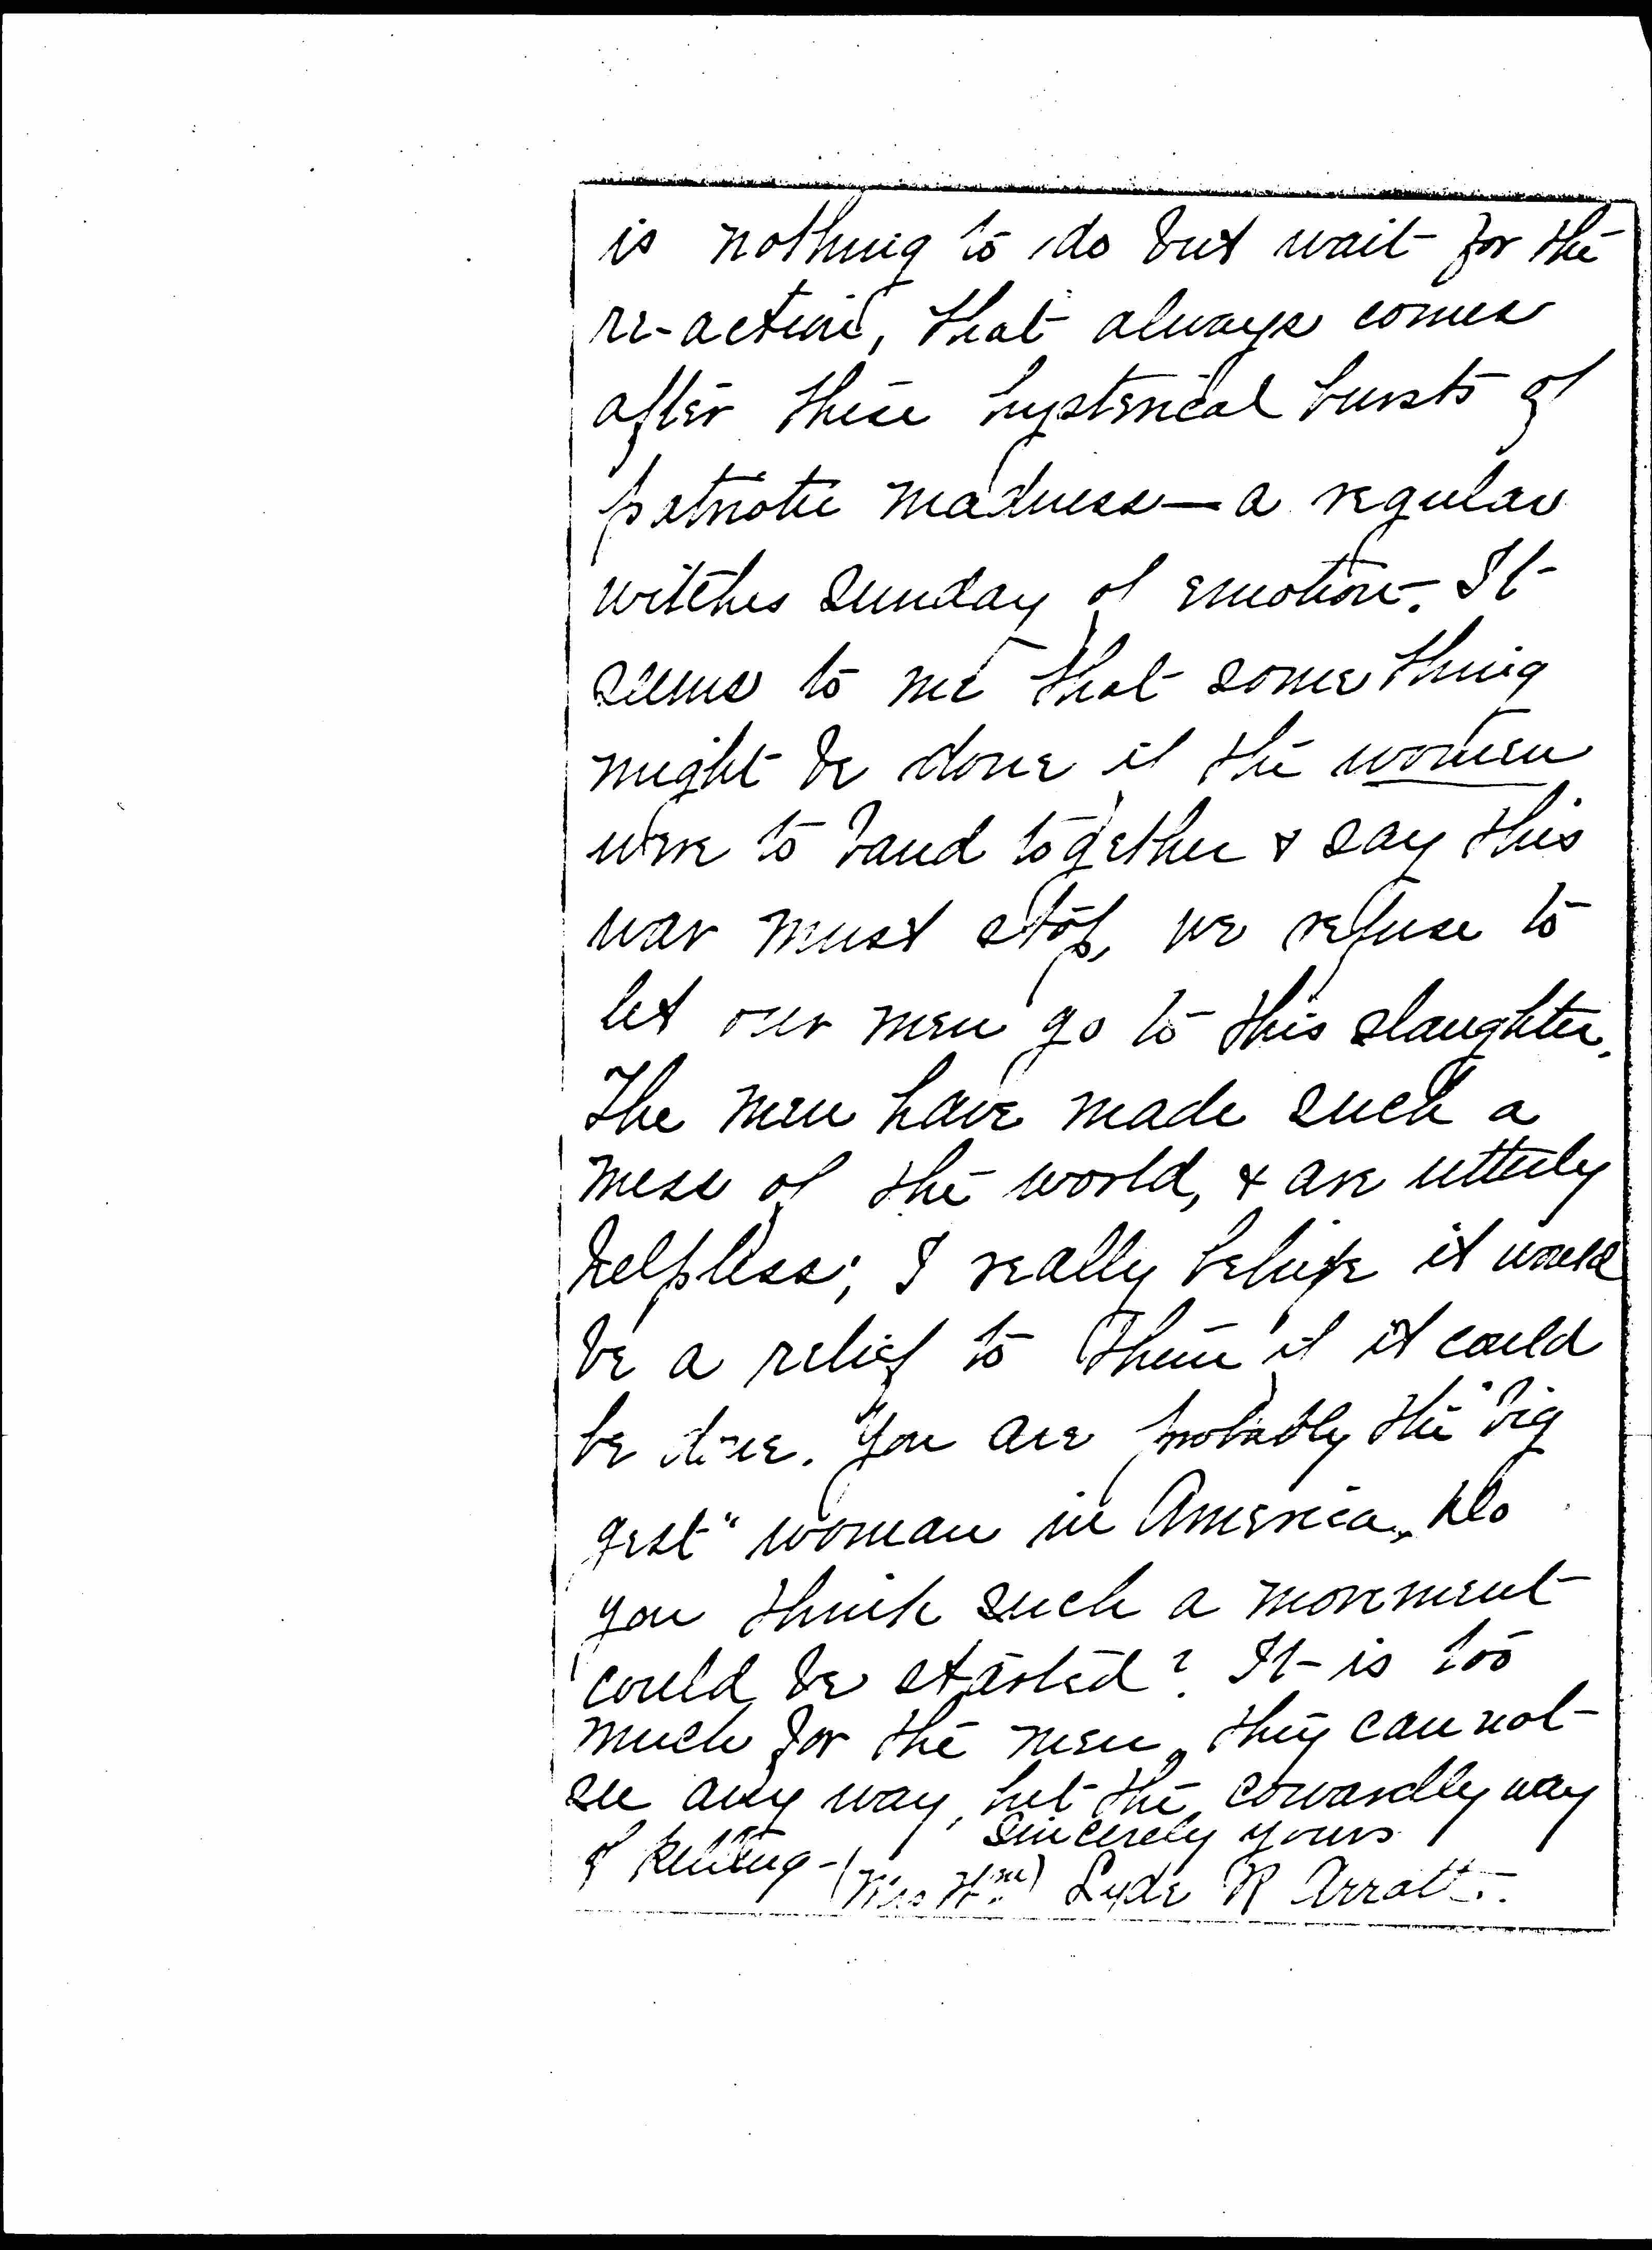 is nothing to do but wait for the
re-action, that always comes
after these hysterical bursts of
patriotic madness — a regular
witches Sunday of emotion. It
seems to me that some thing
might be done if the women
were to band together & say this
war must stop, we refuse to
let our men go to this slaughter.
The men have made such a
mess of the world, & are utterly
helpless; I really believe it would
be a relief to them if it could
be done. You are probably the "big
gest" woman in America, do
you think such a movement
could be started? It is too
much for the men, they can not
see any way, but the cowardly way
of killing - Sincerely yours
(Mrs Wm) Lyde R Arrott.